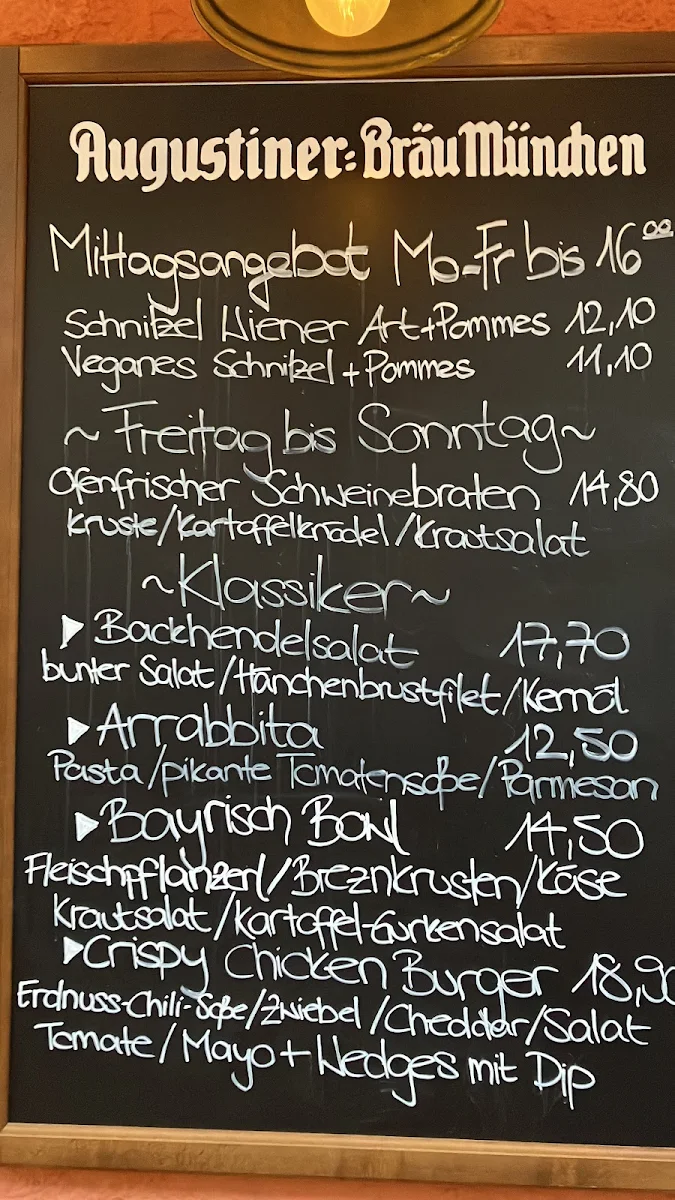 Augustiner-Bräu München
Mittagsangebot Mo-Fr bis 16⁰⁰
Schnitzel Wiener Art+Pommes 12,10
Veganes Schnitzel + Pommes 11,10
~ Freitag bis Sonntag ~
Ofenfrischer Schweinebraten 14,80
Kruste/Kartoffelknödel/Krautsalat
~Klassiker~
▶ Backhendelsalat 17,70
bunter Salat/Hänchenbrustfilet/Kernöl
▶ Arrabbita 12,50
Pasta/pikante Tomatensoße/Parmesan
▶ Bayrisch Bowl 14,50
Fleischpflanzerl/Breznkrusten/Käse
Krautsalat/Kartoffel-Gurkensalat
▶ Crispy Chicken Burger 18,90
Erdnuss-Chili-Soße/Zwiebel/Cheddar/Salat
Tomate/Mayo+Wedges mit Dip